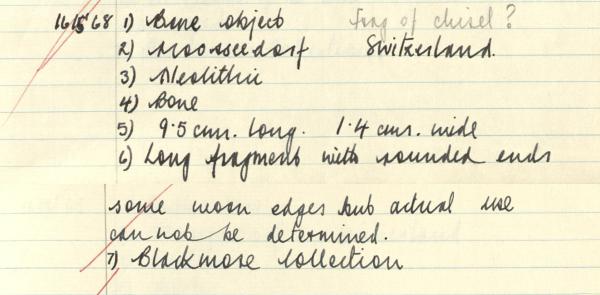 1615'68 1) Bone object Frag of chisel?
2) Moosseedorf Switzerland.
3) Neolithic
4) Bone
5) 9.5 cms. long. 1.4 cms. wide
6) Long fragment with rounded ends
some worn edges but actual use
can not be determined.
7) Blackmore Collection